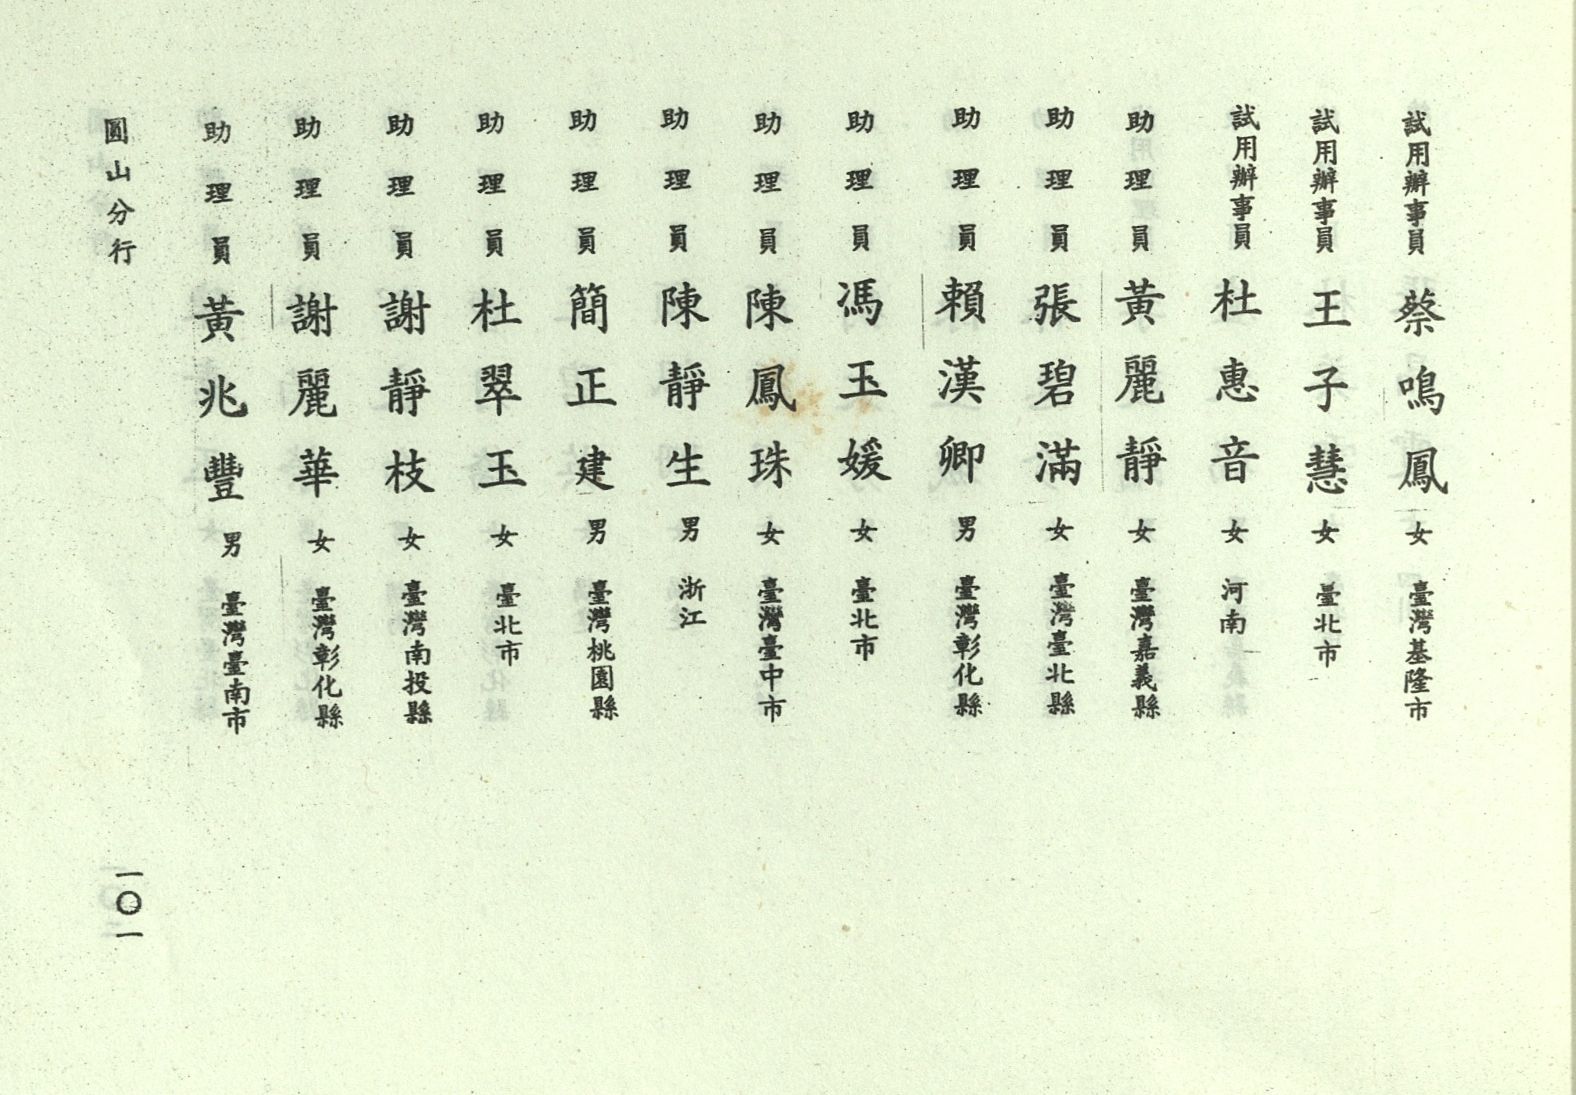 試用辦事員 蔡鳴鳳 女 臺灣基隆市
試用辦事員 王子慧 女 臺北市
試用辦事員 杜惠音 女 河南
助理員 黃麗靜 女 臺灣嘉義縣
助理員 張碧滿 女 臺灣臺北縣
助理員 賴漢卿 男 臺灣彰化縣
助理員 馮玉媛 女 臺北市
助理員 陳鳳珠 女 臺灣臺中市
助理員 陳靜生 男 浙江
助理員 簡正建 男 臺灣桃園縣
助理員 杜翠玉 女 臺北市
助理員 謝靜枝 女 臺灣南投縣
助理員 謝麗華 女 臺灣彰化縣
助理員 黃兆豐 男 臺灣臺南市
圓山分行
一〇一